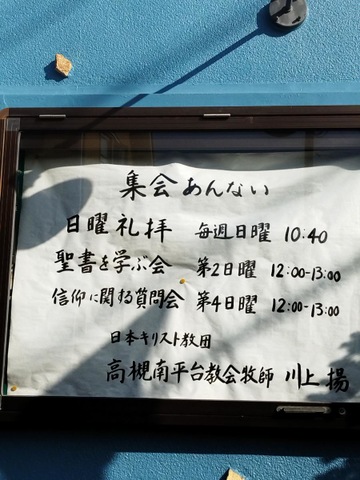 集会あんない
日曜礼拝 毎週日曜 10:40
聖書を学ぶ会 第2日曜 12:00-13:00
信仰に関する質問会 第4日曜 12:00-13:00
日本キリスト教団
高槻南平台教会牧師 川上 揚